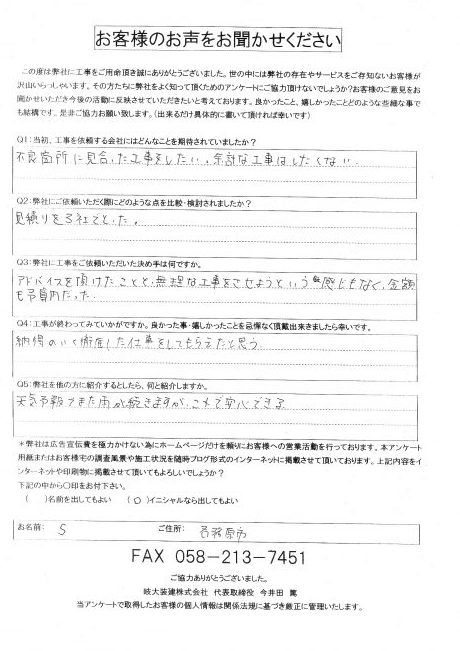 お客様のお声をお聞かせください
この度は弊社に工事をご用命頂き誠にありがとうございました。世の中には弊社の存在やサービスをご存知ないお客様が
沢山いらっしゃいます。その方たちに弊社をよく知って頂くためのアンケートにご協力頂けないでしょうか?お客様のご意見をお
聞かせいただき今後の活動に反映させていただきたいと考えております。良かったこと、嬉しかったことどのような些細な事で
も結構です。是非ご協力お願い致します。(出来るだけ具体的に書いて頂ければ幸いです)
Q1:当初、工事を依頼する会社にはどんなことを期待されていましたか?
不良箇所に見合った工事をしたい。余計な工事はしたくない。
Q2:弊社にご依頼いただく際にどのような点を比較・検討されましたか?
見積りを3社でとった。
Q3:弊社に工事をご依頼いただいた決め手は何ですか。
アドバイスを頂けたことと、無理な工事をさせようという感じもなく、金額
も予算内だった。
Q4:工事が終わってみていかがですか。良かった事・嬉しかったことを忌憚なく頂戴出来ましたら幸いです。
納得のいく徹底した仕事をしてもらえたと思う。
Q5:弊社を他の方に紹介するとしたら、何と紹介しますか。
天気予報でまた雨が続きますが、これで安心できる
*弊社は広告宣伝費を極力かけない為にホームページだけを頼りにお客様への営業活動を行っております。本アンケート
用紙またはお客様宅の調査風景や施工状況を随時ブログ形式のインターネットに掲載させて頂いております。上記内容をイ
ンターネットや印刷物に掲載させて頂いてもよろしいでしょうか?
下記の中から○印をお付下さい。
( )名前を出してもよい (○)イニシャルなら出してもよい
お名前: S ご住所: 各務原市
FAX 058-213-7451
ご協力ありがとうございました。
岐大装建株式会社 代表取締役 今井田 篤
当アンケートで取得したお客様の個人情報は関係法規に基づき厳正に管理いたします。